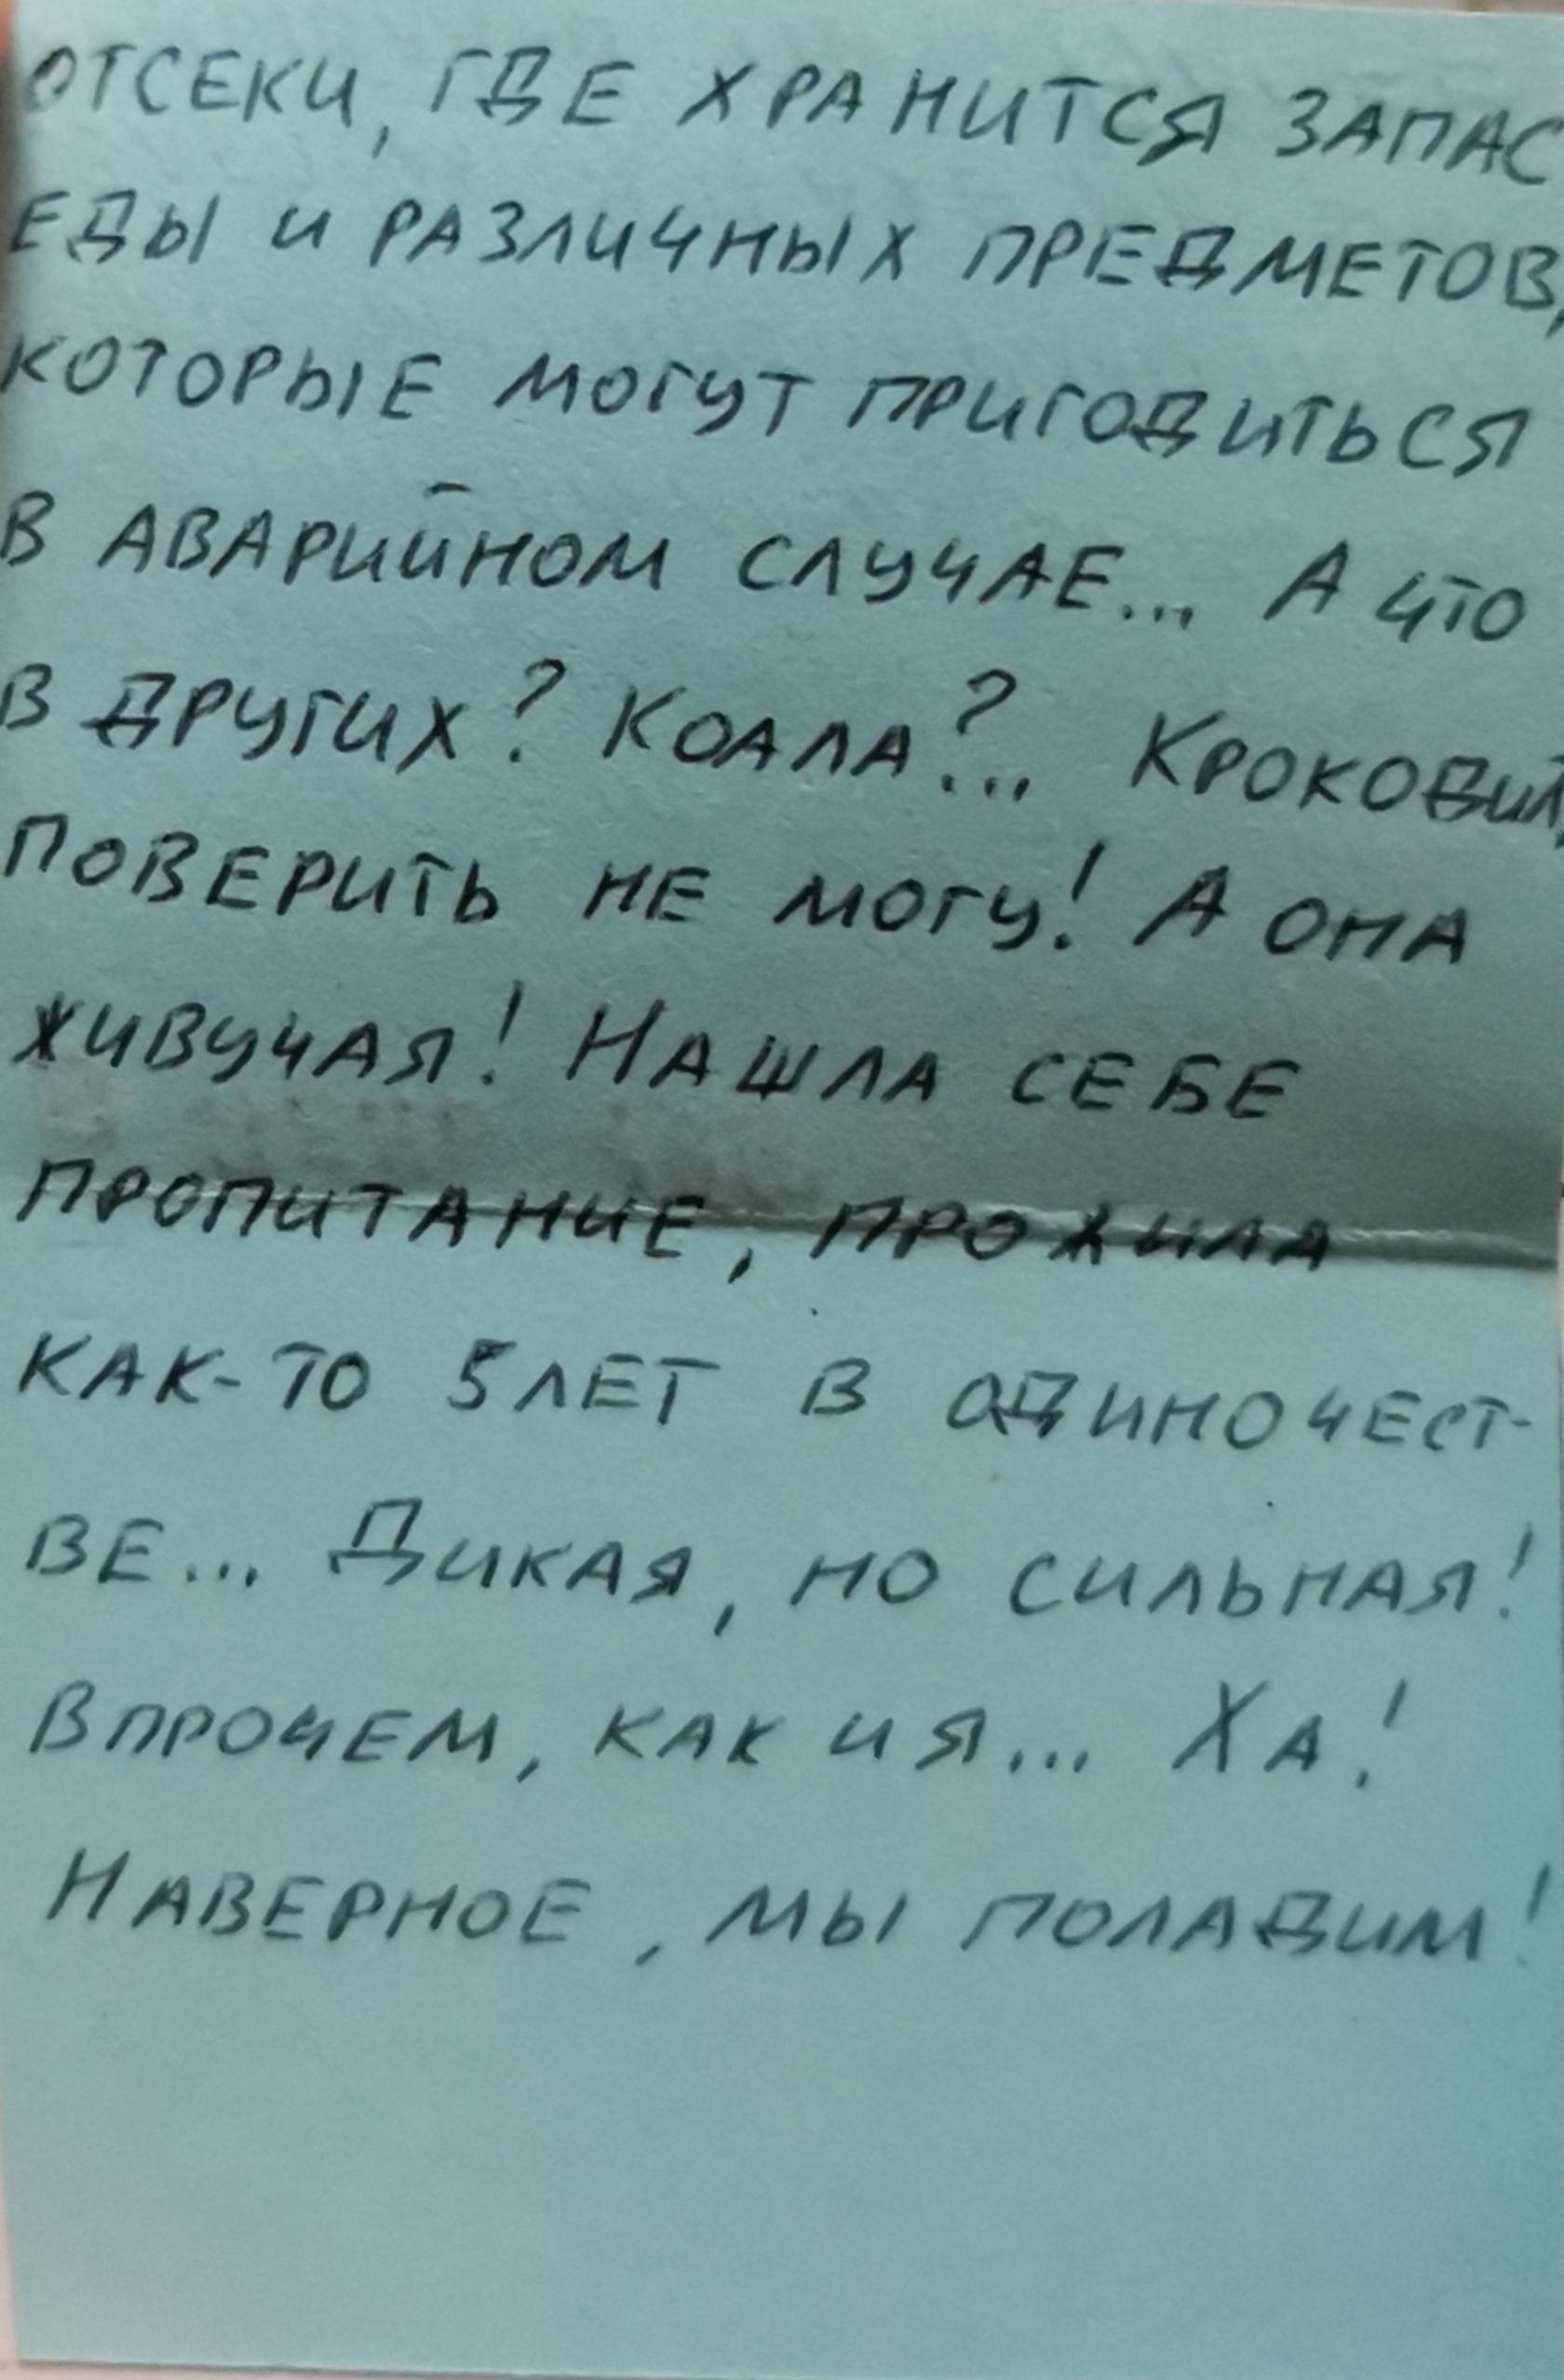 ОТСЕКИ, ГДЕ ХРАНИТСЯ ЗАПАС
ЕДЫ И РАЗЛИЧНЫХ ПРЕДМЕТОВ,
КОТОРЫЕ МОГУТ ПРИГОДИТЬСЯ
В АВАРИЙНОМ СЛУЧАЕ... А ЧТО
В ДРУГИХ? КОАЛА?... КРОКОДИЛ,
ПОВЕРИТЬ НЕ МОГУ! А ОНА
ЖИВУЧАЯ! НАШЛА СЕБЕ
ПРОПИТАНИЕ, ПРОЖИЛА
КАК-ТО 5 ЛЕТ В ОДИНОЧЕСТ-
ВЕ... ДИКАЯ, НО СИЛЬНАЯ!
ВПРОЧЕМ, КАК И Я... ХА!
НАВЕРНОЕ, МЫ ПОЛАДИМ!